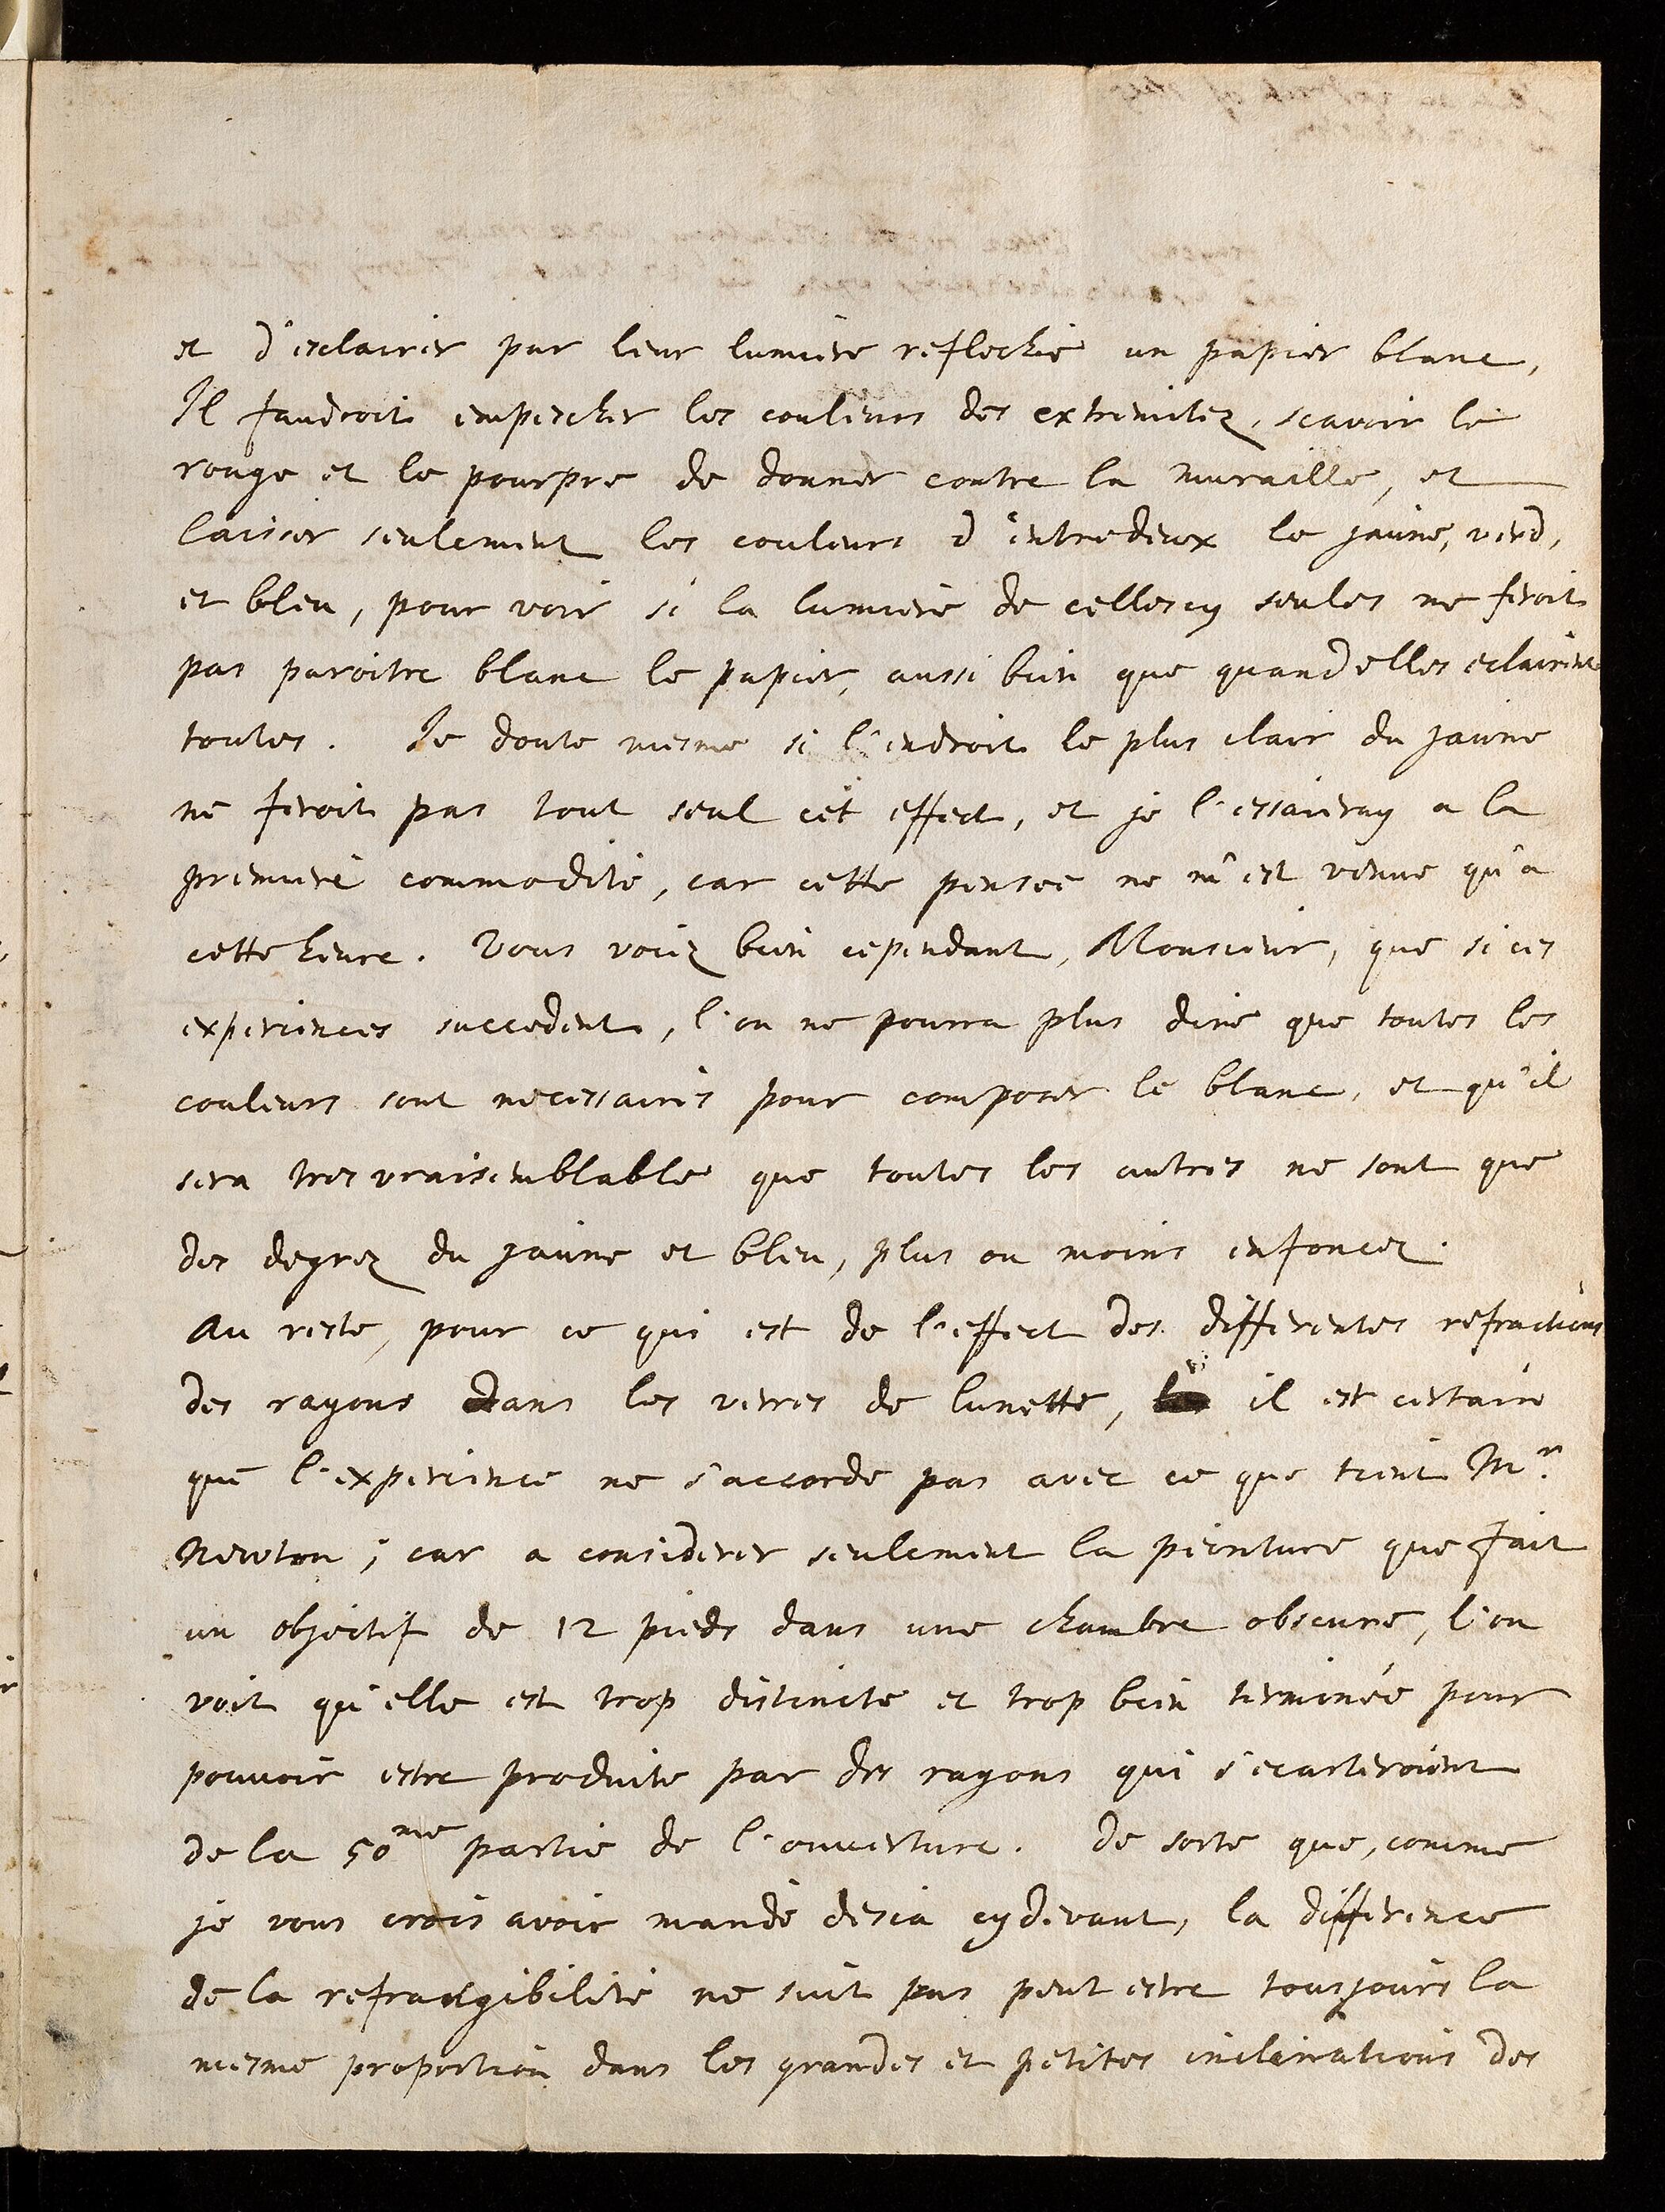 et d'esclairer par leur lumiere reflechie un papier blanc,
Il faudroit empescher les couleurs des extremitez, scavoir le
rouge et le pourpre de donner contre la muraille, et
laisser seulement les couleurs d'entredeux le jaune, verd,
et bleu, pour voir si la lumiere de cellescy seules ne feroit
pas paroitre blanc le papier, aussi bien que quand elles eclairent
toutes. Je doute mesme si l'endroit le plus clair du jaune
ne feroit pas tout seul cet effect, et je l'essaieray a la
premiere commodité, car cette pensee ne m'est venue qu'a
cette heure. Vous voiez bien cependant, Monsieur, que si ces
experiences succedent, l'on ne pourra plus dire que toutes les
couleurs sont necessaires pour composer le blanc, et qu'il
sera tres vraisemblable que toutes les autres ne sont que
des degrez du jaune et bleu, plus ou moins enfoncez.
Au reste, pour ce qui est de l'effect des differentes refractions
des rayons dans les verres de lunette, il est certain
que l'experience ne s'accorde pas avec ce que tient Mr.
Newton; car a considerer seulement la peinture que fait
un objectif de 12 pieds dans une chambre obscure, l'on
voit qu'elle est trop distincte et trop bien terminée pour
pouvoir estre produite par des rayons qui s'ecarteroient
de la 50me partie de l'ouverture. De sorte que, comme
je vous crois avoir mandé desia cydevant, la difference
de la refrangibilité ne suit pas peut estre tousjours la
mesme proportion dans les grandes et petites inclinations des